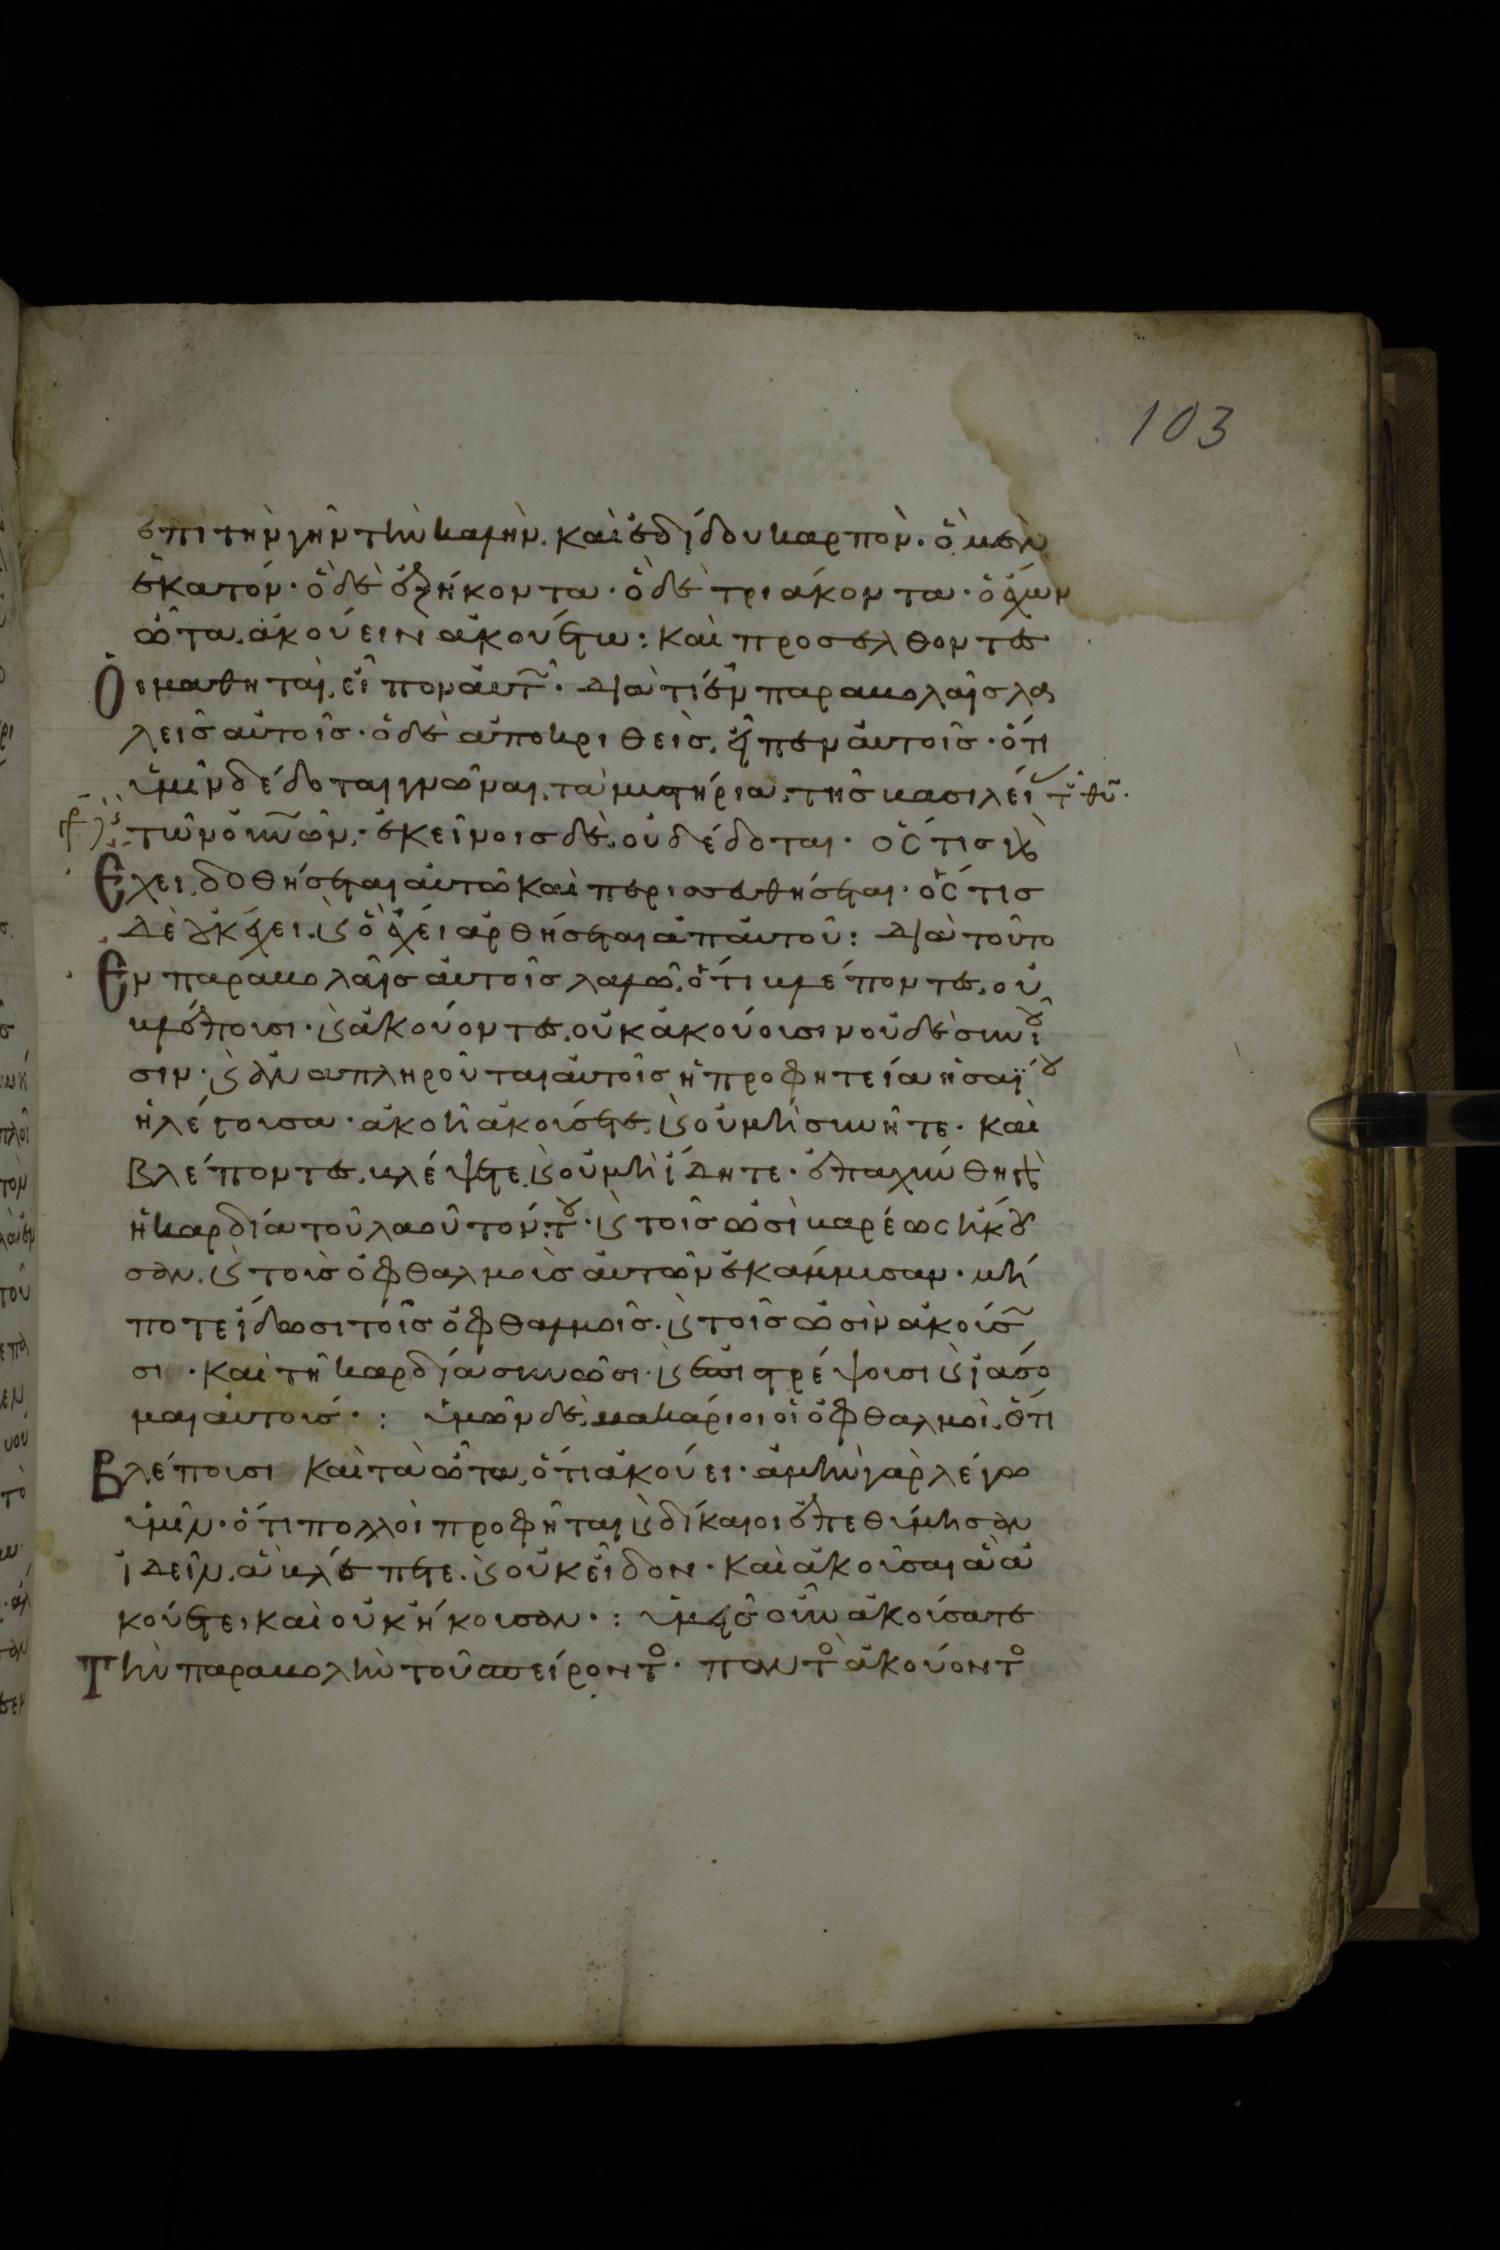 103
ἐπι τὴν γῆν τὴν καλὴν. καὶ ἐδίδου καρπὸν· ὃ μὲν
ἑκατόν· ὃ δὲ ἑξήκοντα· ὃ δὲ τριάκοντα· ὁ ἔχων
ὦτα ἀκούειν ἀκουέτω: καὶ προσελθοντες
οἱ μαθηταὶ, εἶπον αὐτῶ· διατί ἐν παραβολαῖς λα
λεῖς αὐτοῖς· ὁ δὲ ἀποκριθεὶς, εἶπεν αὐτοῖς· ὅτι
ὑμῖν δέδοται γνῶναι, τὰ μυστήρια, τῆς βασιλεί τοῦ θυ.
τῶν οὐνῶν· ἐκείνοις δὲ, οὐ δέδοται· ὅς τις γὰρ
ἔχει, δοθήσεται αὐτῶ καὶ περισσευθήσεται· ὅς τις
δὲ οὐκ ἔχει, κ ὃ ἔχει ἀρθήσεται ἀπ αὐτοῦ: διὰ τοῦτο
ἐν παραβολαῖς αὐτοῖς λαλῶ, ὅτι βλέποντες, οὐ
βλέπουσι· κ ἀκούοντες, οὐκ ἀκούουσιν οὐδὲ συνιοῦ
σιν· κ ἀναπληροῦται αὐτοῖς ἡ προφητεία ἡσαΐου
ἡ λέγουσα· ἀκοῆ ἀκούσετε, κ οὐ μὴ συνῆτε· καὶ
βλέποντες, βλέψετε, κ οὐ μὴ ἴδητε· ἐπαχύνθη γὰρ
ἡ καρδία τοῦ λαοῦ τούτου· κ τοῖς ὠσὶ βαρέως ἤκου
σαν. κ τοὺς ὀφθαλμοὺς αὐτῶν ἐκάμμυσαν· μή
ποτε ἴδωσι τοῖς ὀφθαλμοῖς· κ τοῖς ὠσὶν ἀκούσω
σι· καὶ τῆ καρδία συνῶσι· κ ἐπιστρέψουσι κ ἰάσο
μαι αὐτους·: ὑμῶν δὲ, μακάριοι οἱ ὀφθαλμοὶ, ὅτι
βλέπουσι καὶ τὰ ὦτα, ὅτι ἀκούει· ἀμὴν γὰρ λέγω
ὑμῖν· ὅτι πολλοὶ προφῆται κ δίκαιοι ἐπεθύμησαν
ἰδεῖν, ἃ βλέπετε. κ οὐκ εἶδον· καὶ ἀκοῦσαι ἃ ἀ
κούετε, καὶ οὐκ ἤκουσαν·: ὑμεῖς οὖν ἀκούσατε
τὴν παραβολὴν τοῦ σπείροντος· παντὸς ἀκούοντος